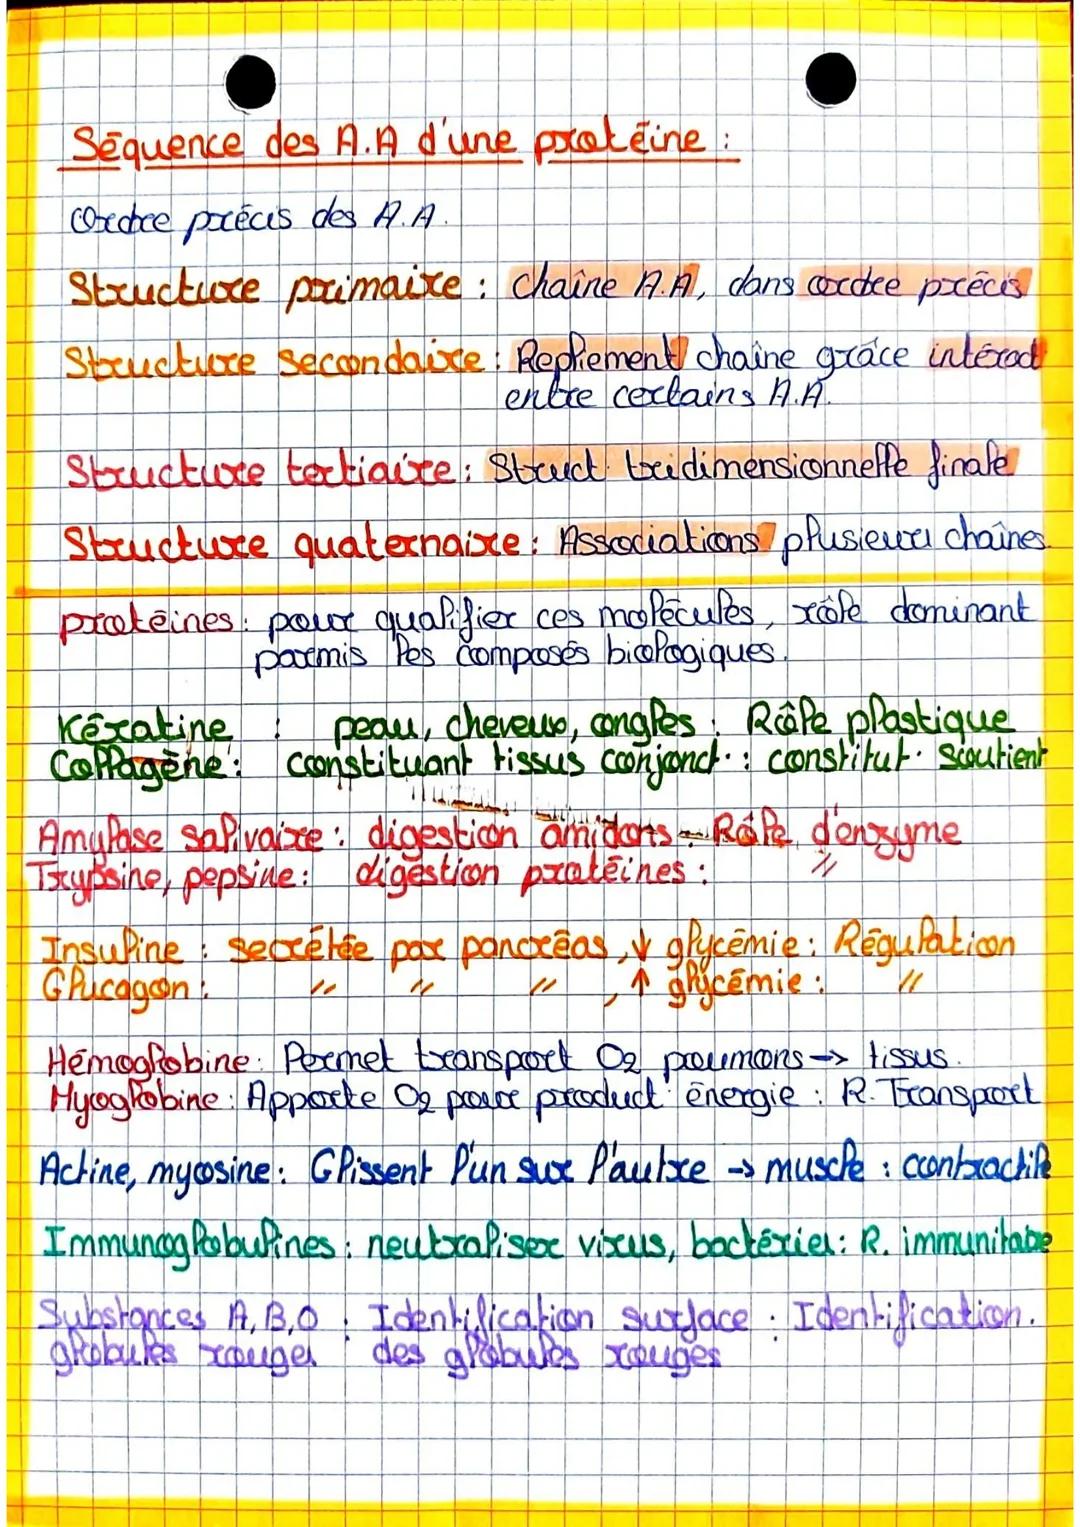 Séquence des A.A d'une protéine :
Ordre précis des A.A.
Structure primaire : chaîne A.A, dans ordre précis
Structure secondaire : Repliement chaîne grâce interact
entre certains A.A.
Structure tertiaire : Struct. tridimensionnelle finale
Structure quaternaire : Associations plusieurs chaînes.
protéines : pour qualifier ces molécules, rôle dominant
parmis les composés biologiques.
Kératine : peau, cheveux, ongles : Rôle plastique
Collagène : constituant tissus conjonct. : constitut. Soutient
Amylase salivaire : digestion amidons : Rôle d'enzyme
Trypsine, pepsine : digestion protéines : //
Insuline : secrétée par pancréas, ↓ glycémie : Régulation
Glucagon : // // // , ↑ glycémie : //
Hémoglobine : Permet transport O2 poumons → tissus.
Myoglobine : Apporte O2 pour product. énergie : R. Transport
Actine, myosine : Glissent l'un sur l'autre → muscle : contractile
Immunoglobulines : neutraliser virus, bactéries : R. immunitaire
Substances A, B, O : Identification surface : Identification.
globules rouges des globules rouges